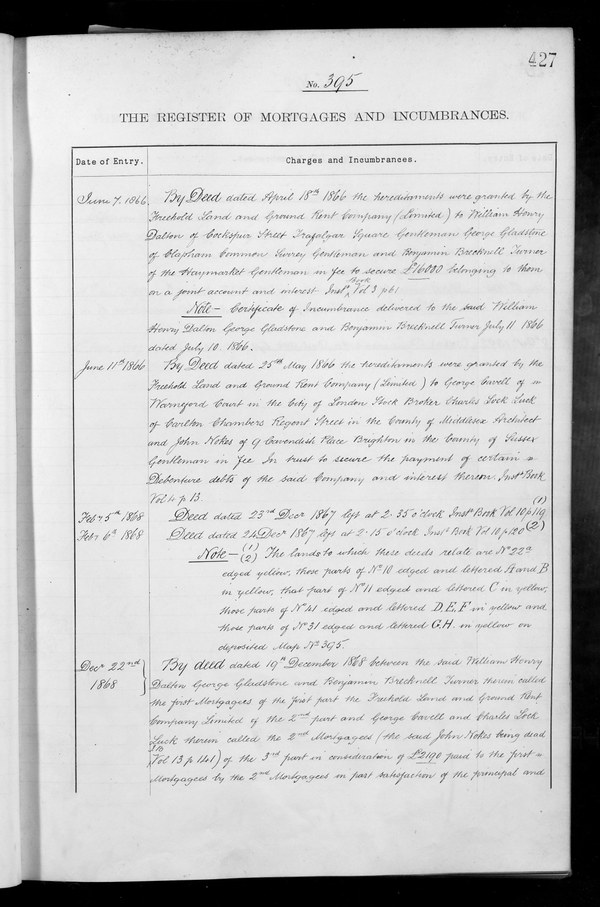 427
No. 395
THE REGISTER OF MORTGAGES AND INCUMBRANCES.
Date of Entry.
Charges and Incumbrances.
June 7. 1866. By Deed dated April 18th 1866 the hereditaments were granted by the
Freehold Land and Ground Rent Company (Limited) to William Henry
Dalton of Cockspur Street Trafalgar Square Gentleman George Gladstone
of Clapham Common Surrey Gentleman and Benjamin Brecknell Turner
of the Haymarket Gentleman in fee to secure £16000 belonging to them
on a joint account and interest Inst. Book Vol 3 p 61
Note – Certificate of Incumbrance delivered to the said William
Henry Dalton George Gladstone and Benjamin Brecknell Turner July 11 1866
dated July 10. 1866.
June 11th 1866 By Deed dated 25th May 1866 the hereditaments were granted by the
Freehold Land and Ground Rent Company (Limited) to George Cavell of
Warnford Court in the City of London Stock Broker Charles Lock Luck
of Carlton Chambers Regent Street in the County of Middlesex Architect
and John Nokes of 9 Cavendish Place Brighton in the County of Sussex
Gentleman in fee In trust to secure the payment of certain
Debenture debts of the said Company and interest thereon. Inst. Book
Vol 4 p 13.
Feby 5th 1868 Deed dated 23rd Decr 1867 left at 2.35 o'clock Inst. Book Vol 10 p 119 (1)
Feby 6th 1868 Deed dated 24 Decr 1867 left at 2.15 o'clock Inst. Book Vol 10 p 120 (2)
Note – (1) (2) The lands to which these deeds relate are No 22a
edged yellow, those parts of No 10 edged and lettered A and B
in yellow, that part of No 11 edged and lettered C in yellow,
those parts of No 41 edged and lettered D.E.F in yellow and
those parts of No 31 edged and lettered G.H. in yellow on
deposited Map No 395.
Decr 22nd 1868 By deed dated 19th December 1868 between the said William Henry
Dalton George Gladstone and Benjamin Brecknell Turner therein called
the first Mortgagees of the first part the Freehold Land and Ground Rent
Company Limited of the 2nd part and George Cavell and Charles Lock
Luck therein called the 2nd Mortgagees (the said John Nokes being dead
IB Vol 13 p 141) of the 3rd part in consideration of £2190 paid to the first
Mortgagees by the 2nd Mortgagees in part satisfaction of the principal and